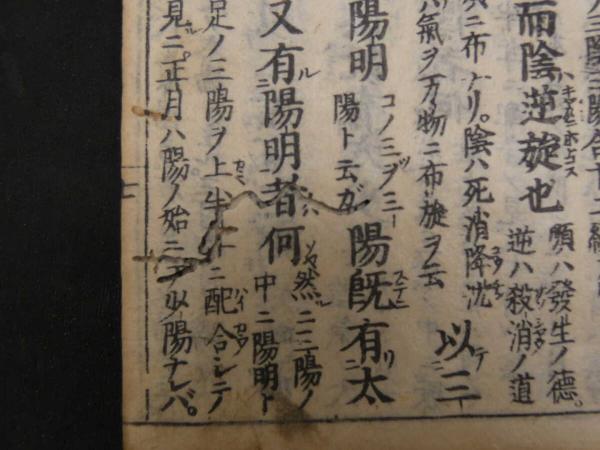 三陰三陽合十二
而陰逆旋也
順ハ發生ノ德。
逆ハ殺消ノ道
ニ布ナリ。陰ハ死消降沈
ハ氣ヲ万物ニ布旋ヲ云
以三
陽明
コノ三ヅ三
陽ト云ガ
陽既有太
又有陽明者何
然ルニ三陽ノ
中ニ陽明ト
足ノ三陽ヲ上半年ニ配合シテ
見ルニ。正月ハ陽ノ始ニテ少陽ナレバ。